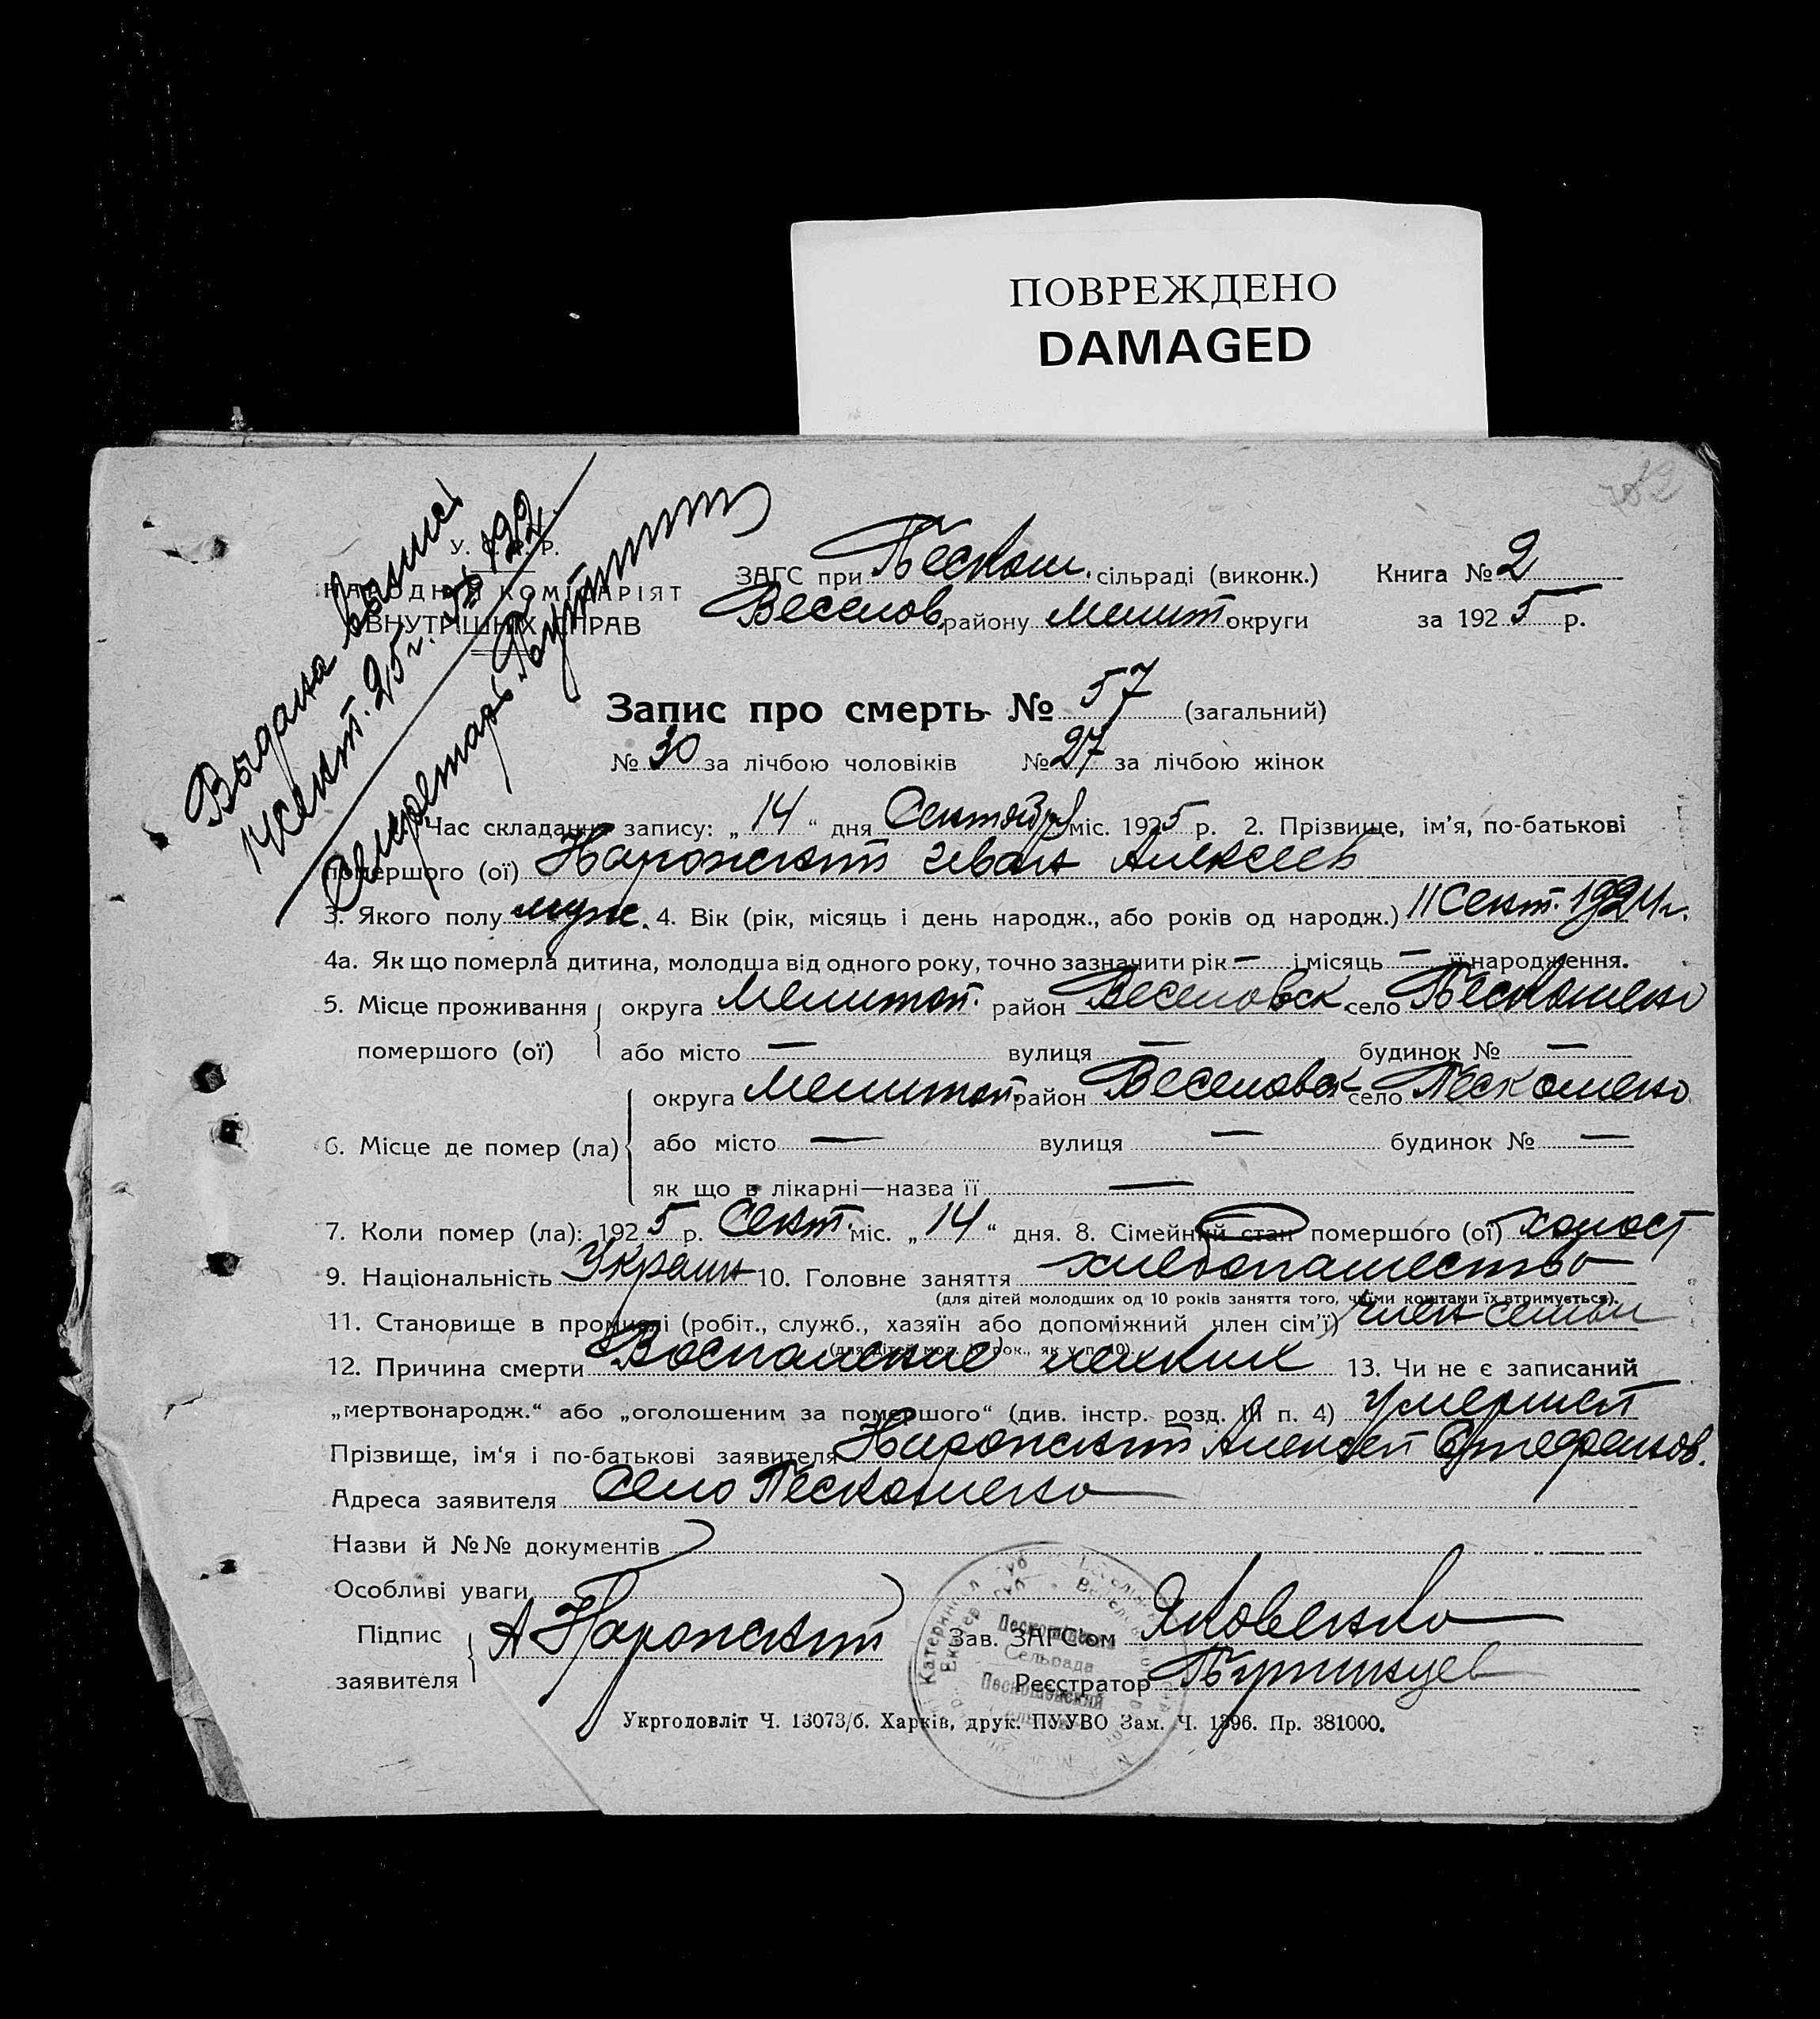 ПОВРЕЖДЕНО
DAMAGED
Выдана выпись
14 сент. 25 г.
Секретарь
У. С. Р. Р.
НАРОДНІЙ КОМІСАРІЯТ
ВНУТРІШНІХ СПРАВ
ЗАГС при Пескош. сільраді (виконк.) Книга № 2
Веселов. району Мелит округи за 1925 р.
Запис про смерть № 57 (загальний)
№ 30 за лічбою чоловіків № 27 за лічбою жінок
Час складання запису: „14“ дня Сентября міс. 1925 р. 2. Прізвище, ім’я, по-батькові
помершого (ої) Нарожский Иван Алексеев
3. Якого полу муж. 4. Вік (рік, місяць і день народж., або років од народж.) 11 Сент. 1924 г.
4а. Як що померла дитина, молодша від одного року, точно зазначити рік — і місяць — її народження.
5. Місце проживання округа Мелитоп. район Веселовск село Пескошено
помершого (ої) або місто — вулиця — будинок № —
округа Мелитоп. район Веселовск село Пескошено
6. Місце де помер (ла) або місто — вулиця — будинок № —
як що в лікарні—назва її —
7. Коли помер (ла): 1925 р. Сент. міс. „14“ дня. 8. Сімейний стан помершого (ої) холост
9. Національність Украин 10. Головне заняття хлебопашество
(для дітей молодших од 10 років заняття того, чиїми коштами їх втримується).
11. Становище в промислі (робіт., служб., хазяїн або допоміжний член сім’ї) член семьи
(для дітей мол. 10 рок., як у п. 10).
12. Причина смерти Воспаление легких 13. Чи не є записаний
„мертвонародж.“ або „оголошеним за помершого“ (див. інстр. розд. III п. 4) умерший
Прізвище, ім‘я і по-батькові заявителя Нарожский Алексей
Адреса заявителя село Пескошено
Назви й №№ документів
Особливі уваги
Підпис
заявителя А Нарожский
Зав. ЗАГС'ом Яковенко
Реєстратор
Сельрада
Пескошенский
Укрголовліт Ч. 13073/б. Харків, друк. ПУУВО Зам. Ч. 1396. Пр. 381000.